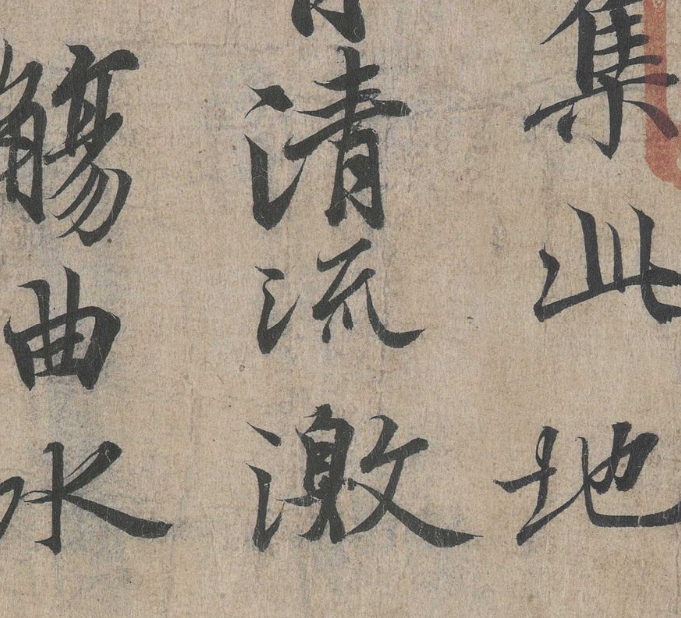 集此地
清流激
觴曲水